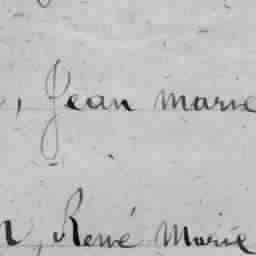 , Jean marie
, René Marie